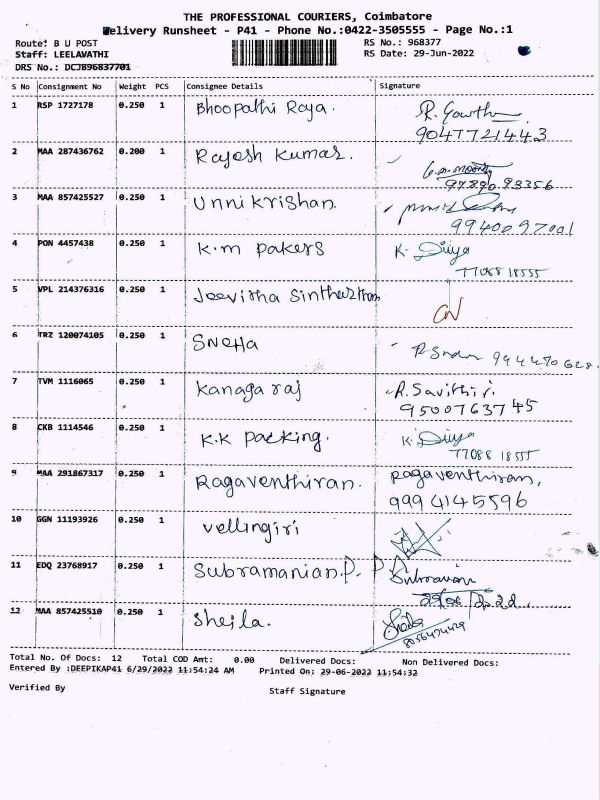 THE PROFESSIONAL COURIERS, Coimbatore
Delivery Runsheet - P41 - Phone No.:0422-3505555 - Page No.:1
Route: B U POST
RS No.: 968377
Staff: LEELAVATHI
RS Date: 29-Jun-2022
DRS No.: DCJB96837701
S No Consignment No Weight PCS Consignee Details Signature
1 RSP 1727178 0.250 1 Bhoopathi Raja. R. Gowth
9047721443
2 MAA 287436762 0.200 1 Rajesh Kumar.
97890 93356
3 MAA 857425527 0.250 1 Unnikrishan.
9940097001
4 PON 4457438 0.250 1 K.m pakers K. Diya
77088 18555
5 VPL 214376316 0.250 1 Jeevitha
6 TRZ 120074105 0.250 1 SNeHa
7 TVM 1116065 0.250 1 Kanagaraj R. Savithiri.
9500763745
8 CKB 1114546 0.250 1 K.K packing. K. Diya
77088 18555
9 MAA 291867317 0.250 1 Ragaventhiran. Ragaventhiran,
9994145596
10 GGN 11193926 0.250 1 vellingiri
11 EDQ 23768917 0.250 1 Subramanian.P.
12 MAA 857425510 0.250 1 Sheila. Sheila
Total No. Of Docs: 12 Total COD Amt: 0.00 Delivered Docs: Non Delivered Docs:
Entered By :DEEPIKAP41 6/29/2022 11:54:24 AM Printed On: 29-06-2022 11:54:32
Verified By Staff Signature